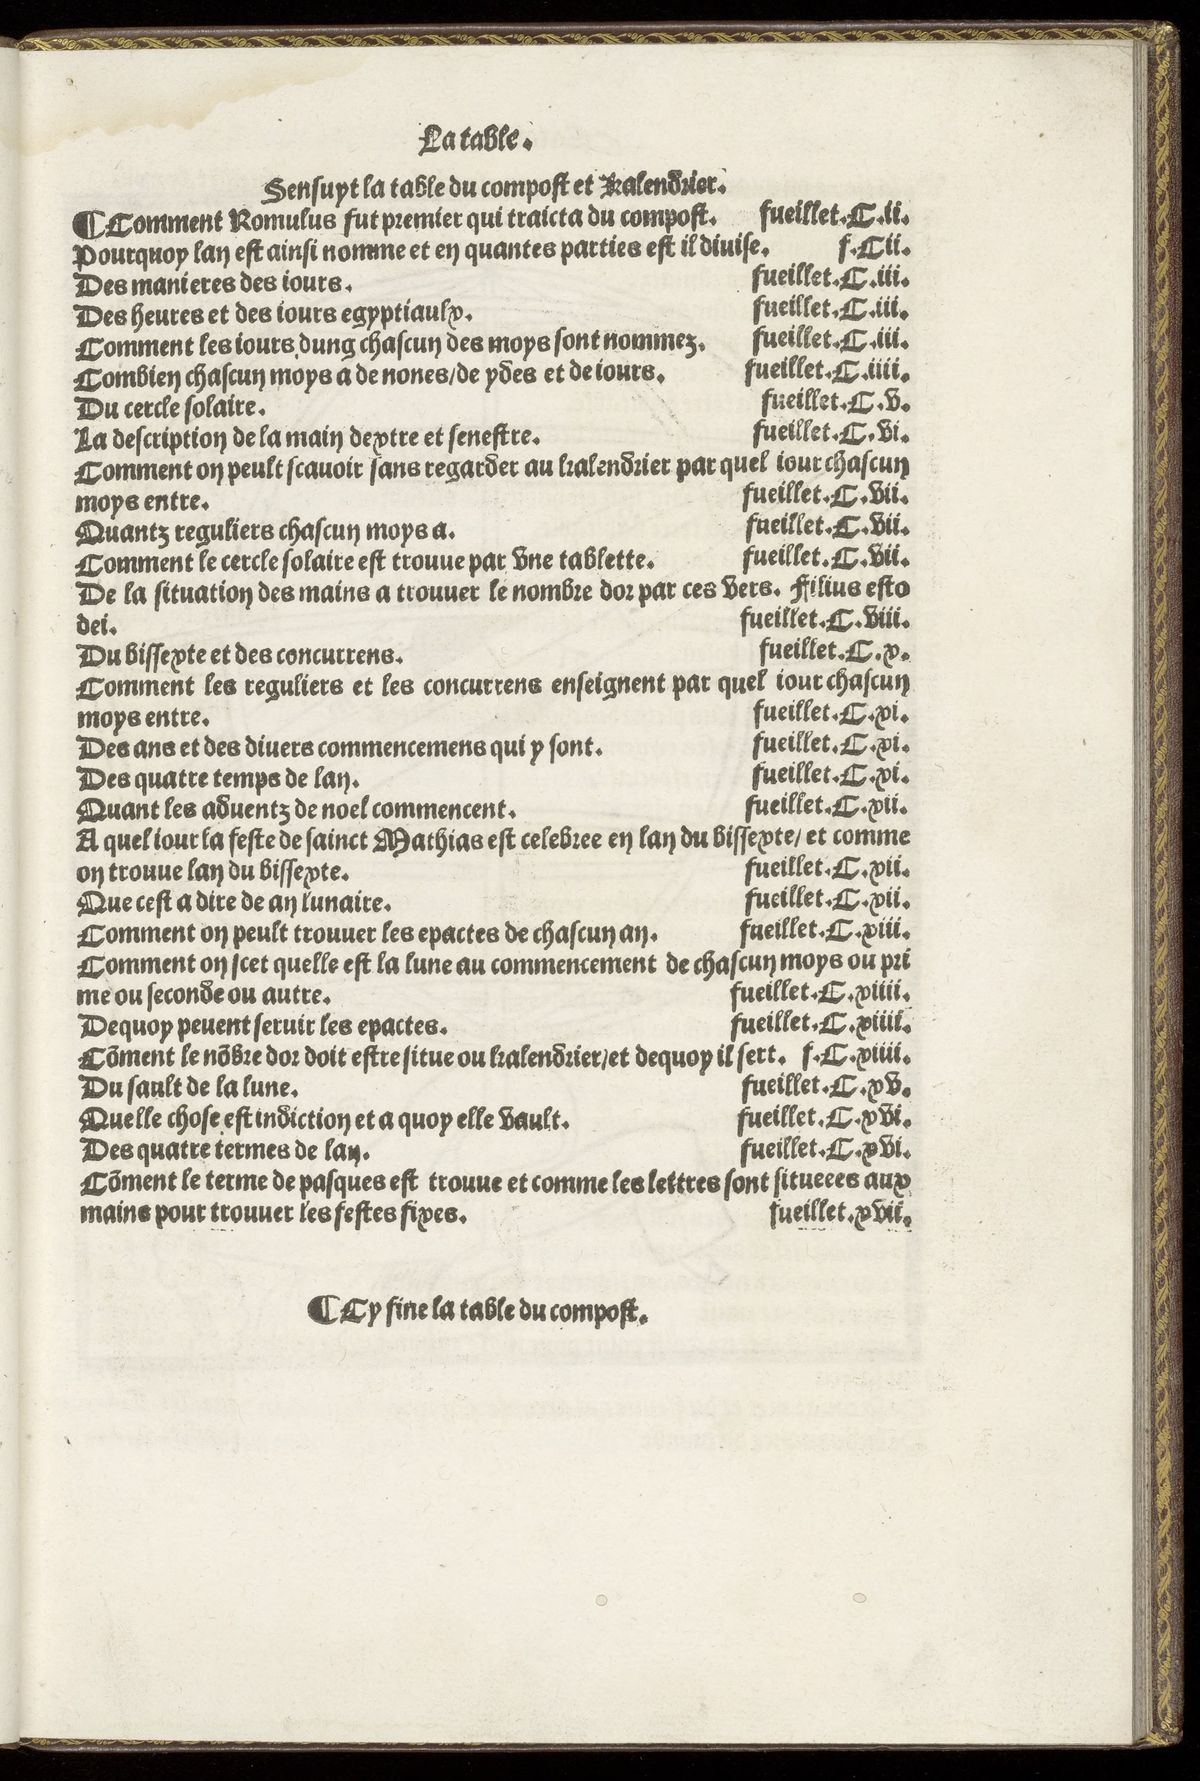 La table.
Sensuyt la table du compost et kalendrier.
¶Comment Romulus fut premier qui traicta du compost. fueillet.C.ii.
Pourquoy lan est ainsi nomme et en quantes parties est il diuise. f.Cii.
Des manieres des iours. fueillet.C.iii.
Des heures et des iours egyptiaulx. fueillet.C.iii.
Comment les iours dung chascun des moys sont nommez. fueillet.C.iii.
Combien chascun moys a de nones/de ydes et de iours. fueillet.C.iiii.
Du cercle solaire. fueillet.C.v.
La description de la main dextre et senestre. fueillet.C.vi.
Comment on peult scauoir sans regarder au kalendrier par quel iour chascun
moys entre. fueillet.C.vii.
Quantz reguliers chascun moys a. fueillet.C.vii.
Comment le cercle solaire est trouue par vne tablette. fueillet.C.vii.
De la situation des mains a trouuer le nombre dor par ces vers. Filius esto
dei. fueillet.C.viii.
Du bissexte et des concurrens. fueillet.C.x.
Comment les reguliers et les concurrens enseignent par quel iour chascun
moys entre. fueillet.C.xi.
Des ans et des diuers commencemens qui y sont. fueillet.C.xi.
Des quatre temps de lan. fueillet.C.xi.
Quant les aduentz de noel commencent. fueillet.C.xii.
A quel iour la feste de sainct Mathias est celebree en lan du bissexte/ et comme
on trouue lan du bissexte. fueillet.C.xii.
Que cest a dire de an lunaire. fueillet.C.xii.
Comment on peult trouuer les epactes de chascun an. fueillet.C.xiii.
Comment on scet quelle est la lune au commencement de chascun moys ou pri
me ou seconde ou autre. fueillet.C.xiiii.
Dequoy peuent seruir les epactes. fueillet.C.xiiii.
Cõment le nõbre dor doit estre situe ou kalendrier/et dequoy il sert. f.C.xiiii.
Du sault de la lune. fueillet.C.xv.
Quelle chose est indiction et a quoy elle vault. fueillet.C.xvi.
Des quatre termes de lan. fueillet.C.xvi.
Cõment le terme de pasques est trouue et comme les lettres sont situees aux
mains pour trouuer les festes fixes. fueillet.xvii.
¶Cy fine la table du compost.